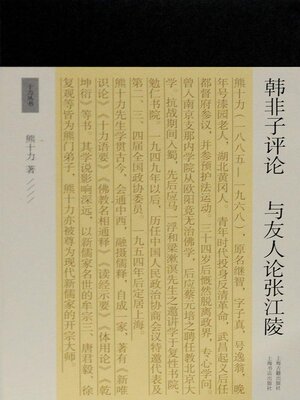 韩非子评论 与友人论张江陵
熊十力(一八八五—一九六八),原名继智,字子真,号逸翁,晚
年号漆园老人,湖北黄冈人。青年时代投身反清革命,武昌起义后任
都督府参议,并参预护法运动。三十四岁后慨然脱离政界,专心学问。
曾入南京支那内学院从欧阳竟无治佛学,后应蔡元培之聘任教北京大
学。抗战期间入蜀,先后应马一浮和梁漱溟先生之邀讲学于复性书院、
勉仁书院。一九四九年以后,历任中国人民政治协商会议特邀代表及
第二、三、四届全国政协委员。一九五四年后定居上海。
熊十力先生学贯古今,会通中西,融摄儒释,自成一家,著有《新唯
识论》《十力语要》《佛教名相通释》《读经示要》《体用论》《乾
坤衍》等书,其学说影响深远,以新儒家名世的牟宗三、唐君毅、徐
复观等皆为熊门弟子,熊十力亦被尊为现代新儒家的开宗大师。
十力丛书
熊十力 著
上海古籍出版社
上海书店出版社